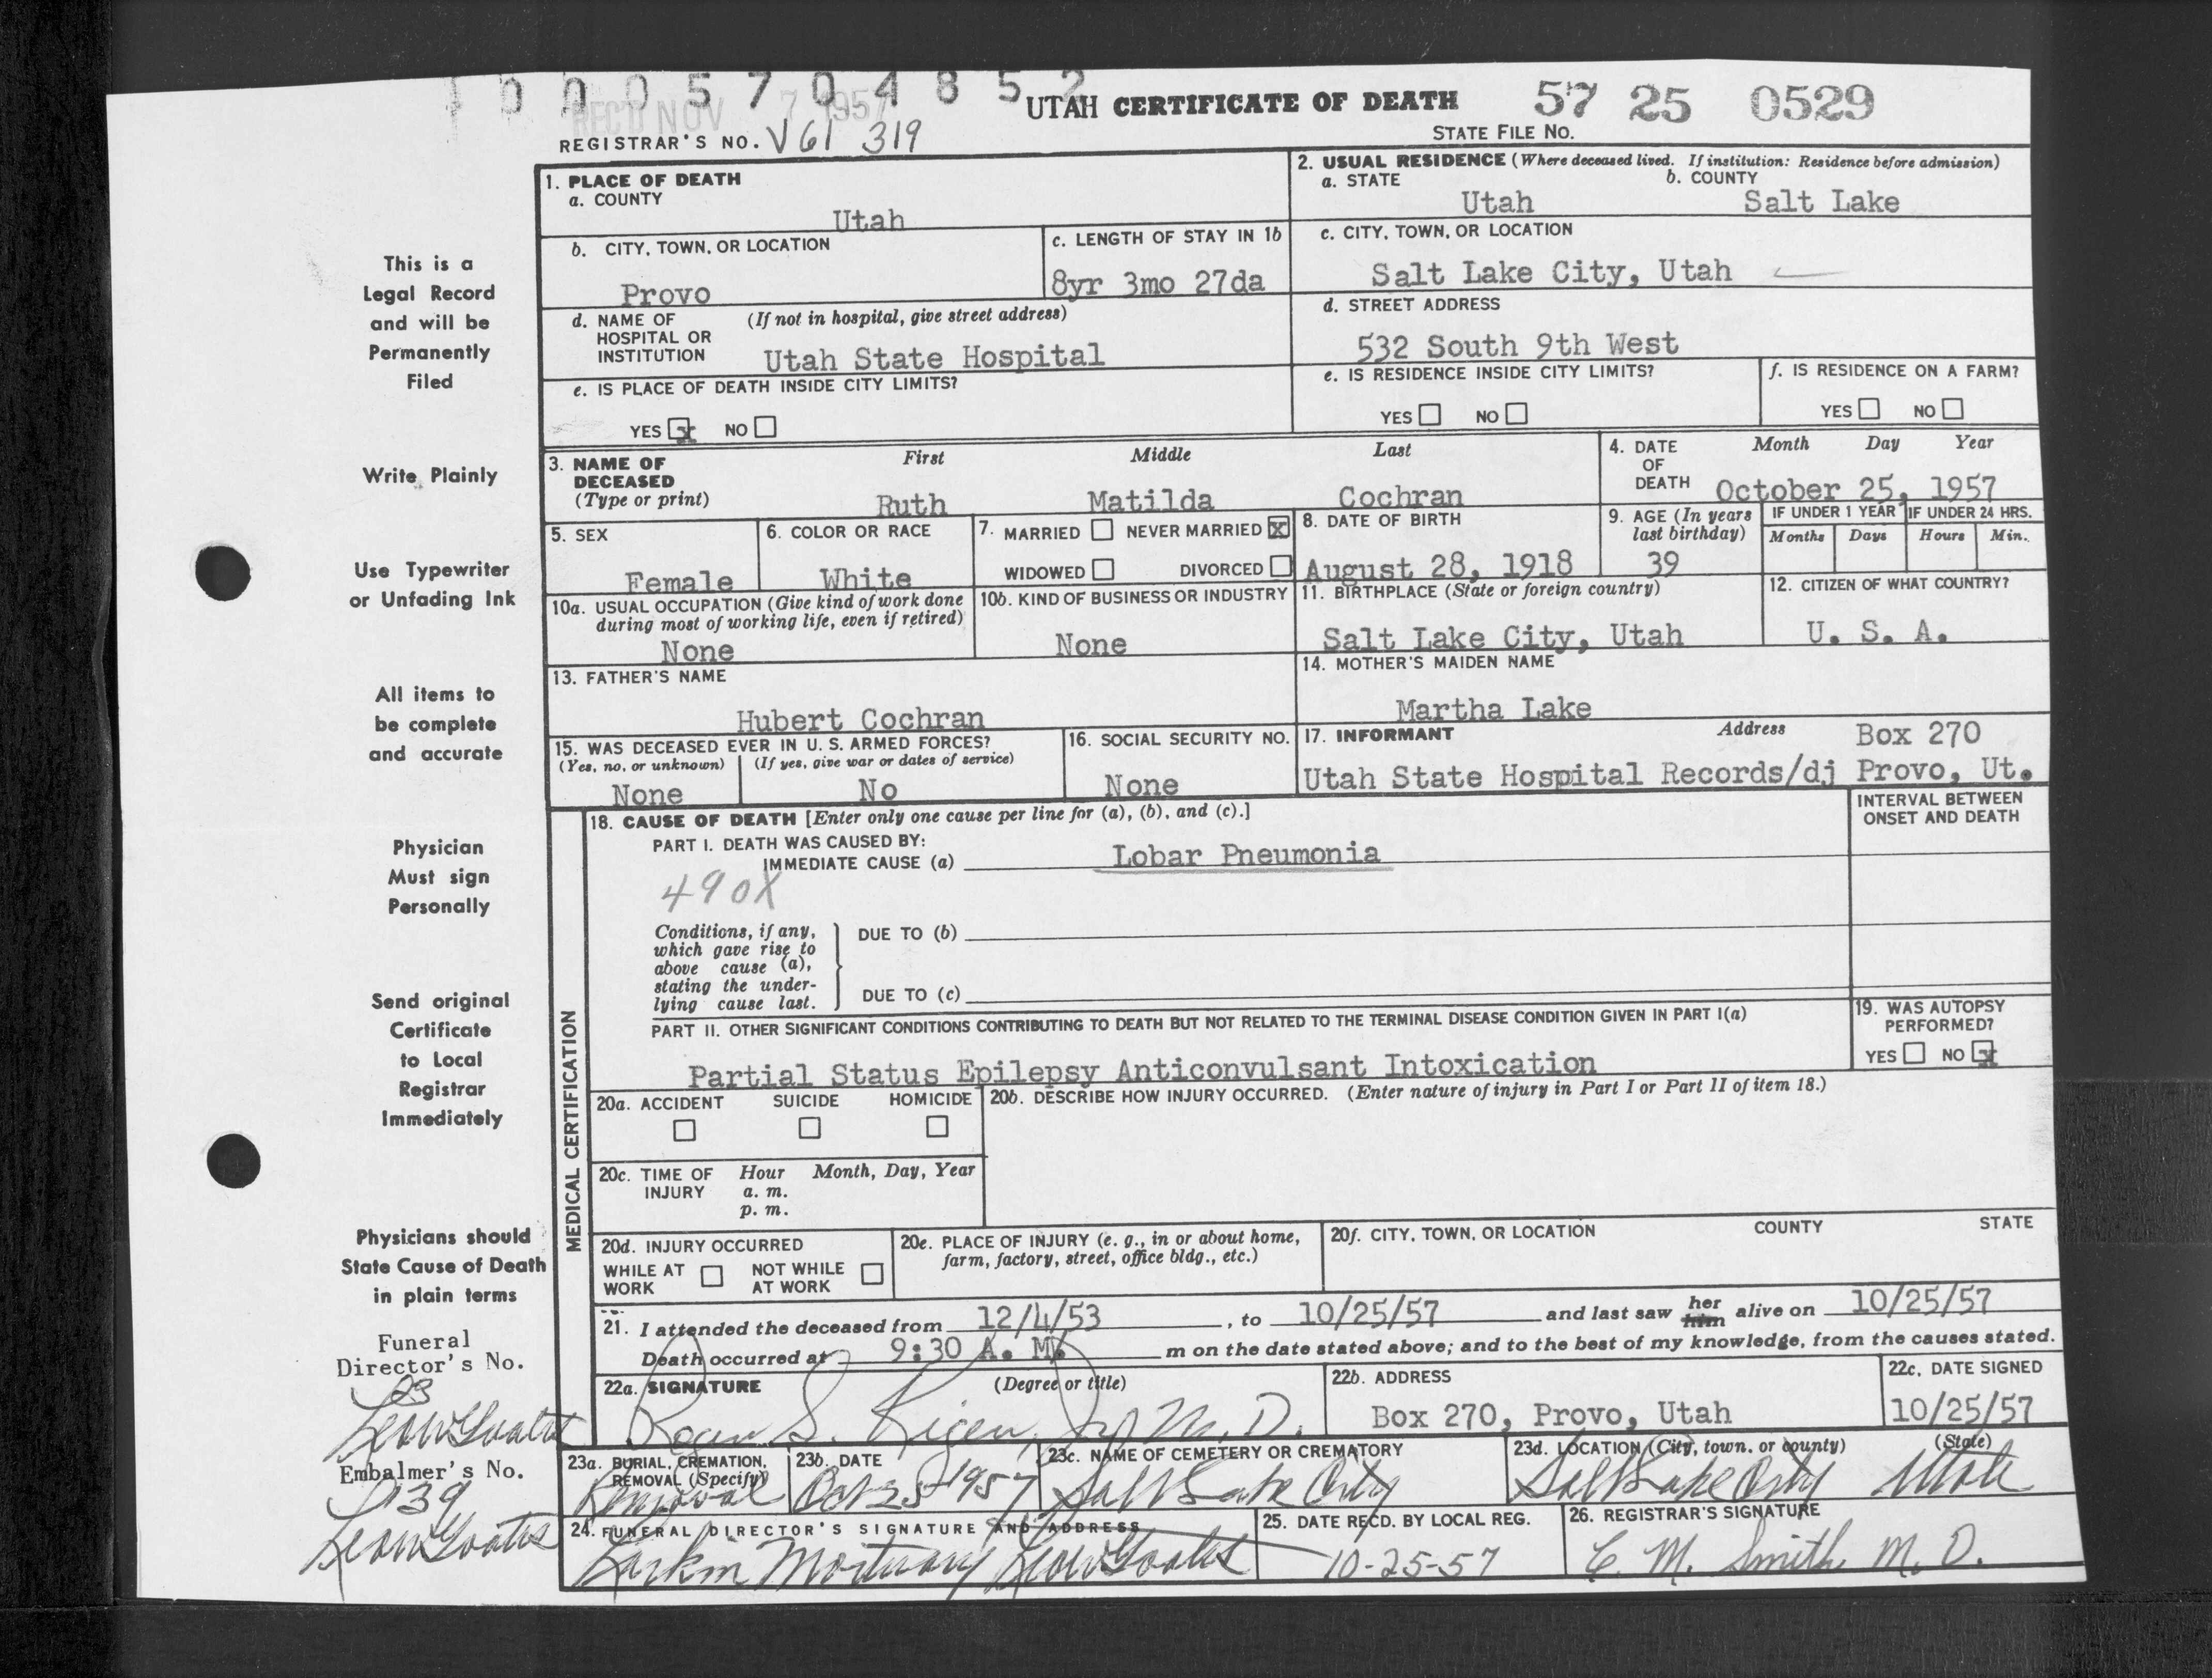 1 0 0 0 5 7 0 4 8 5 2
REC'D NOV 7 1957
UTAH CERTIFICATE OF DEATH
57 25 0529
STATE FILE NO.
REGISTRAR'S NO. V61 319
1. PLACE OF DEATH
a. COUNTY
Utah
2. USUAL RESIDENCE (Where deceased lived. If institution: Residence before admission)
a. STATE
b. COUNTY
Utah
Salt Lake
b. CITY, TOWN, OR LOCATION
Provo
c. LENGTH OF STAY IN 1b
8yr 3mo 27da
c. CITY, TOWN, OR LOCATION
Salt Lake City, Utah
d. NAME OF (If not in hospital, give street address)
HOSPITAL OR
INSTITUTION Utah State Hospital
d. STREET ADDRESS
532 South 9th West
e. IS PLACE OF DEATH INSIDE CITY LIMITS?
YES x NO
e. IS RESIDENCE INSIDE CITY LIMITS?
YES NO
f. IS RESIDENCE ON A FARM?
YES NO
3. NAME OF
DECEASED
(Type or print)
First Middle Last
Ruth Matilda Cochran
4. DATE
OF
DEATH
Month Day Year
October 25, 1957
5. SEX
Female
6. COLOR OR RACE
White
7. MARRIED NEVER MARRIED X
WIDOWED DIVORCED
8. DATE OF BIRTH
August 28, 1918
9. AGE (In years
last birthday)
39
IF UNDER 1 YEAR
Months Days
IF UNDER 24 HRS.
Hours Min.
10a. USUAL OCCUPATION (Give kind of work done
during most of working life, even if retired)
None
10b. KIND OF BUSINESS OR INDUSTRY
None
11. BIRTHPLACE (State or foreign country)
Salt Lake City, Utah
12. CITIZEN OF WHAT COUNTRY?
U. S. A.
13. FATHER'S NAME
Hubert Cochran
14. MOTHER'S MAIDEN NAME
Martha Lake
15. WAS DECEASED EVER IN U. S. ARMED FORCES?
(Yes, no, or unknown) (If yes, give war or dates of service)
None No
16. SOCIAL SECURITY NO.
None
17. INFORMANT Address Box 270
Utah State Hospital Records/dj Provo, Ut.
MEDICAL CERTIFICATION
18. CAUSE OF DEATH [Enter only one cause per line for (a), (b), and (c).]
INTERVAL BETWEEN
ONSET AND DEATH
PART I. DEATH WAS CAUSED BY:
IMMEDIATE CAUSE (a) Lobar Pneumonia
490X
Conditions, if any,
which gave rise to
above cause (a),
stating the under-
lying cause last.
DUE TO (b)
DUE TO (c)
PART II. OTHER SIGNIFICANT CONDITIONS CONTRIBUTING TO DEATH BUT NOT RELATED TO THE TERMINAL DISEASE CONDITION GIVEN IN PART I(a)
Partial Status Epilepsy Anticonvulsant Intoxication
19. WAS AUTOPSY
PERFORMED?
YES NO x
20a. ACCIDENT SUICIDE HOMICIDE
20b. DESCRIBE HOW INJURY OCCURRED. (Enter nature of injury in Part I or Part II of item 18.)
20c. TIME OF Hour Month, Day, Year
INJURY a. m.
p. m.
20d. INJURY OCCURRED
WHILE AT
WORK
NOT WHILE
AT WORK
20e. PLACE OF INJURY (e. g., in or about home,
farm, factory, street, office bldg., etc.)
20f. CITY, TOWN, OR LOCATION COUNTY STATE
21. I attended the deceased from 12/4/53, to 10/25/57 and last saw her him alive on 10/25/57
Death occurred at 9:30 A. M. m on the date stated above; and to the best of my knowledge, from the causes stated.
22a. SIGNATURE (Degree or title)
M. D.
22b. ADDRESS
Box 270, Provo, Utah
22c. DATE SIGNED
10/25/57
23a. BURIAL, CREMATION,
REMOVAL (Specify)
Removal
23b. DATE
Oct 25 1957
23c. NAME OF CEMETERY OR CREMATORY
Salt Lake City
23d. LOCATION (City, town, or county) (State)
Salt Lake City Utah
24. FUNERAL DIRECTOR'S SIGNATURE AND ADDRESS
Larkin Mortuary
25. DATE RECD. BY LOCAL REG.
10-25-57
26. REGISTRAR'S SIGNATURE
C. M. Smith M. D.
This is a
Legal Record
and will be
Permanently
Filed
Write Plainly
Use Typewriter
or Unfading Ink
All items to
be complete
and accurate
Physician
Must sign
Personally
Send original
Certificate
to Local
Registrar
Immediately
Physicians should
State Cause of Death
in plain terms
Funeral
Director's No.
Embalmer's No.